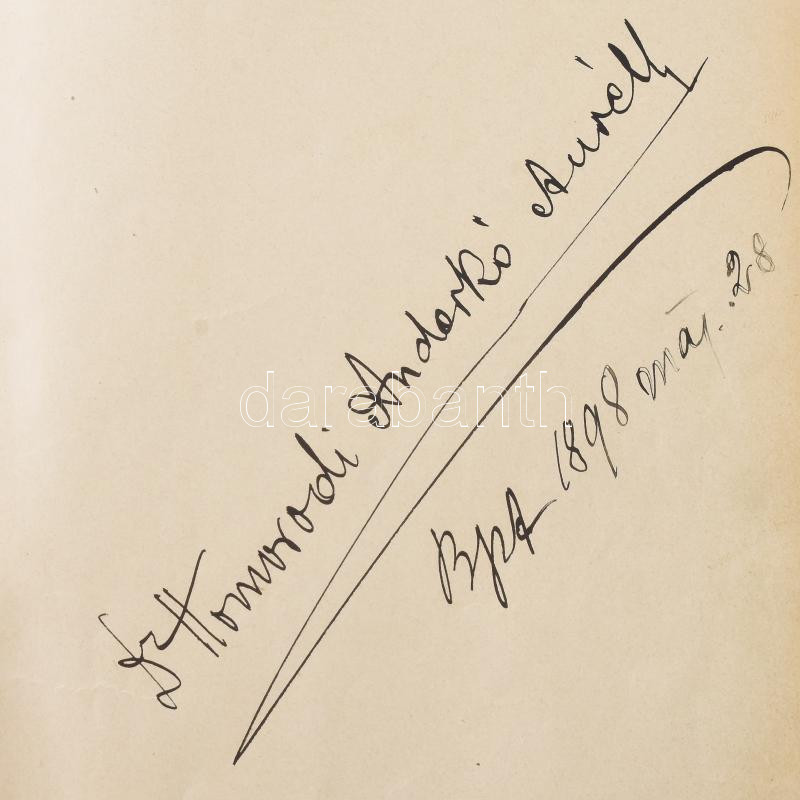 Dr Homorodi Anderkó Aurél
Bpt 1898 máj. 28
darabanth